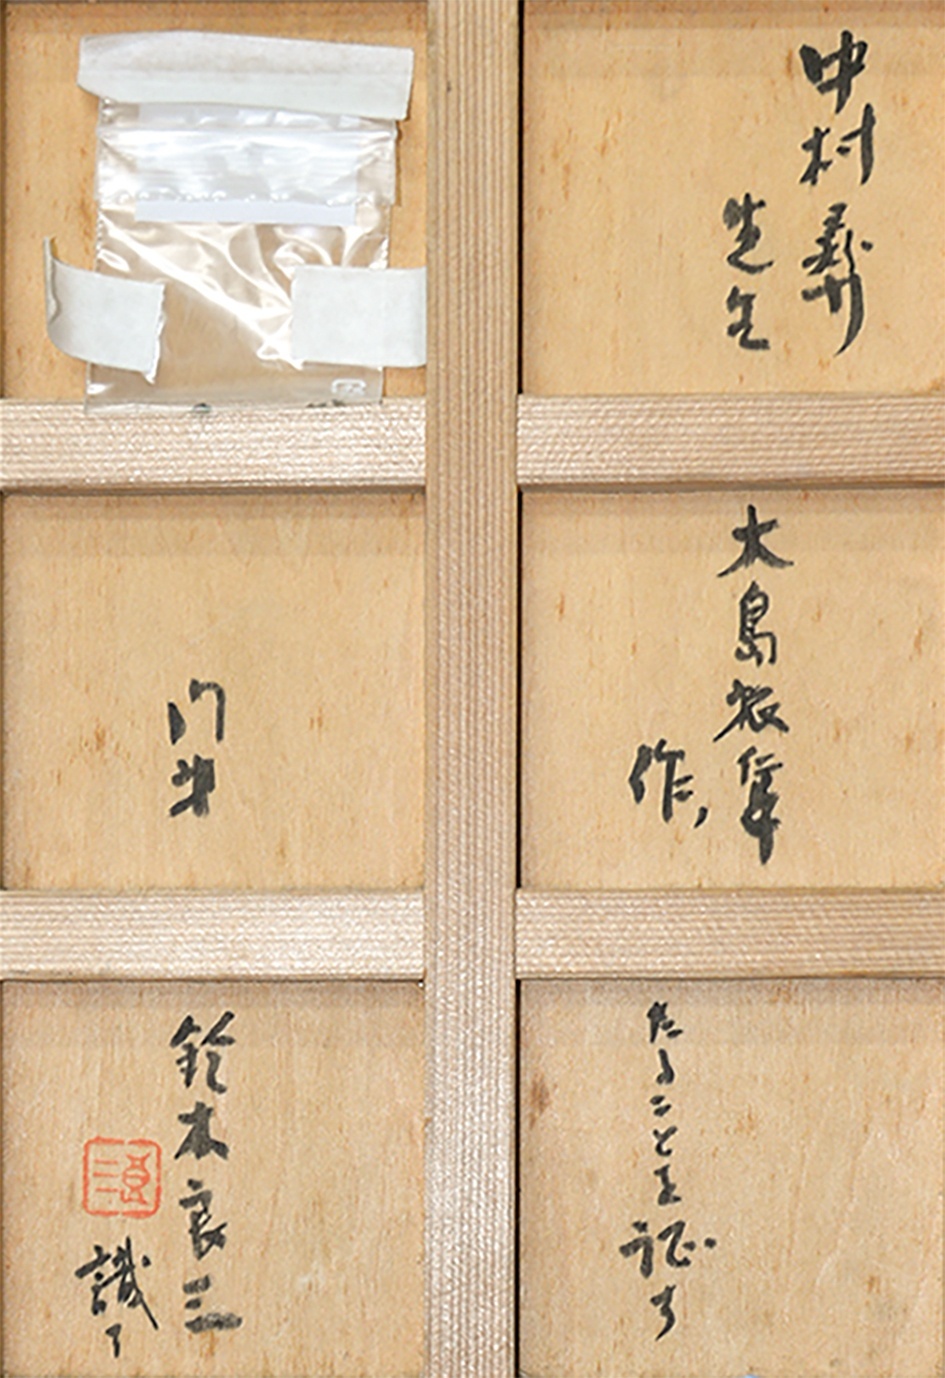 中村彝
先生
大島
作,
たることを証す
門弟
鈴木良三
良三
識す